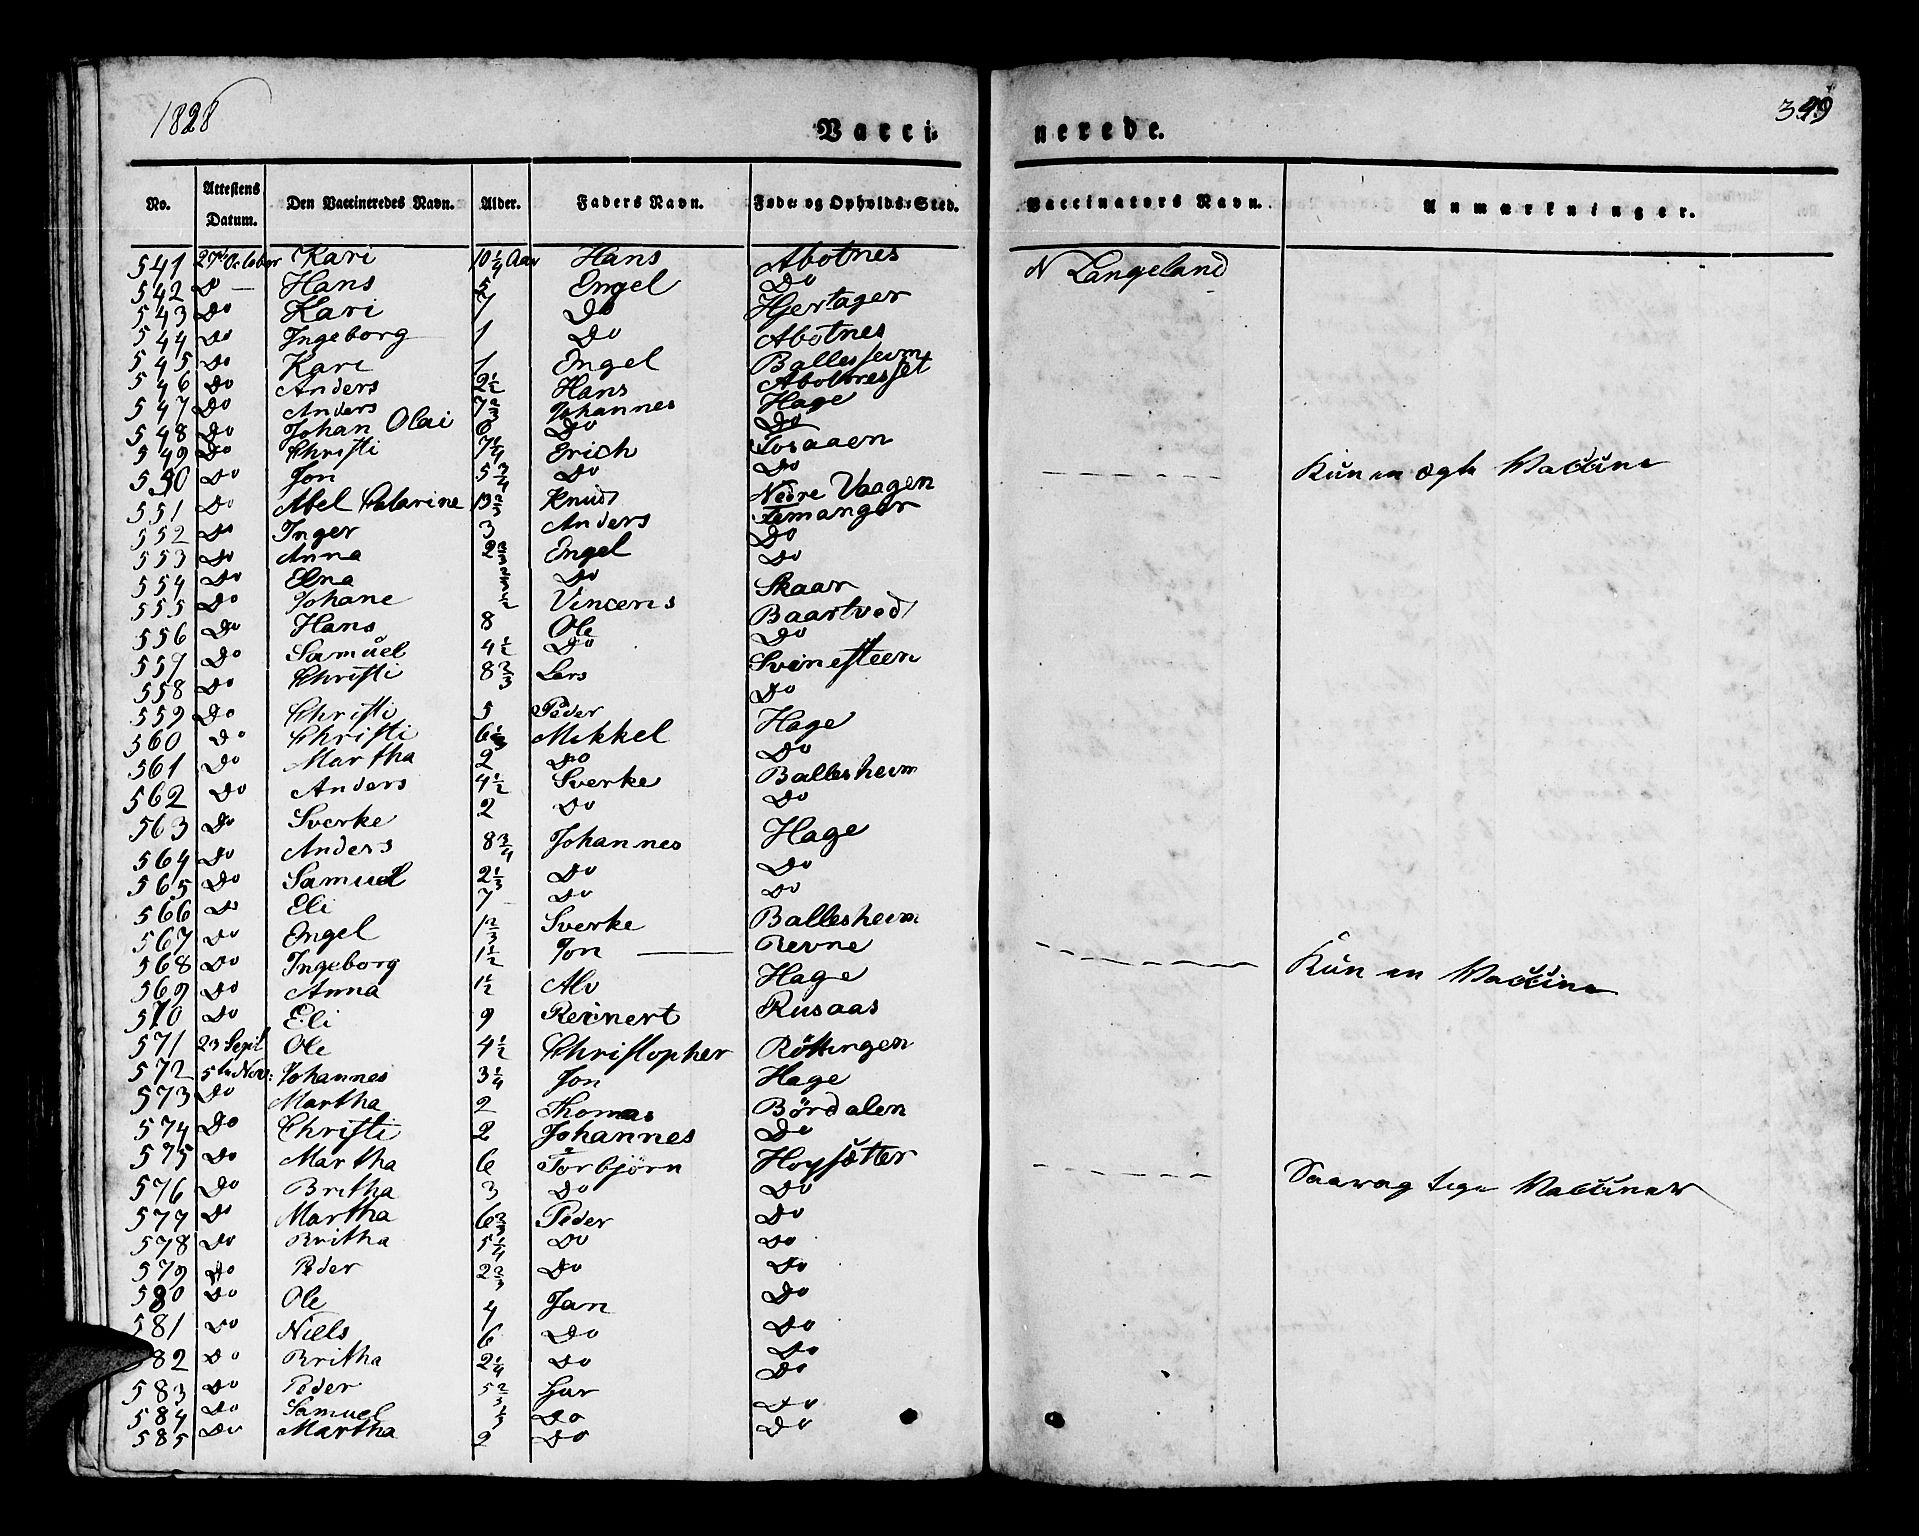 1828
349
Vacci-
nerede.
No. Attestens Datum. Den Vaccineredes Navn. Alder. Faders Navn. Føde- og Opholds-Sted. Vaccinators Navn. Anmærkninger.
541 27de October Kari 10 1/4 Aar Hans Abotnes N Langeland
542 Do — Hans 5 Engel Do
543 Do Kari 7 Do Hjertager
544 Do Ingeborg 1 Do Abotnes
545 Do Kari 1 Engel Ballesheim
546 Do Anders 2 1/2 Hans
547 Do Anders 7 2/3 Johannes Hage
548 Do Johan Olai 6 Do Do
549 Do Christi 7 1/4 Erich Tosaaen
550 Do Jon 5 3/4 Do Do Kun en ægte Vaccine
551 Do Abel Catarine 13 2/3 Knud Nedre Vaagen
552 Do Inger 3 Anders Femanger
553 Do Anna 2 2/3 Engel Do
554 Do Elna 2/3 Do Do
555 Do Johane 1/2 Vincens Skaar
556 Do Hans 8 Ole Baartved
557 Do Samuel 4 1/2 Do Do
558 Do Christi 8 2/3 Lers Svinesteen
559 Do Christi 5 Peder Do
560 Do Christi 6 Mikkel Hage
561 Do Martha 2 Do Do
562 Do Anders 4 1/2 Sverke Ballesheim
563 Do Sverke 2 Do Do
564 Do Anders 8 3/4 Johannes Hage
565 Do Samuel 2 1/3 Do Do
566 Do Eli 7 Do Do
567 Do Engel 1 2/3 Sverke Ballesheim
568 Do Ingeborg 1 1/2 Jon — Revne Kun en Vaccine
569 Do Anna 1 1/2 Alv Hage
570 Do Eli 9 Reinert Rusaas
571 23 Sept Ole 4 1/2 Christopher Röttingen
572 5te Nov: Johannes 3 1/4 Jon Hage
573 Do Martha 2 Thomas Bördalen
574 Do Christi 2 Johannes Do
575 Do Martha 6 Torbjörn Hoysæter Saavag tege Vacciner
576 Do Britha 3 Do Do
577 Do Martha 6 2/3 Peder Do
578 Do Britha 5 1/4 Do Do
579 Do Peder 2 2/3 Do Do
580 Do Ole 4 Jan Do
581 Do Niels 6 Do Do
582 Do Britha 2 1/4 Do Do
583 Do Peder 5 2/3 Do
584 Do Samuel 1/3 Do Do
585 Do Martha 2 Do Do